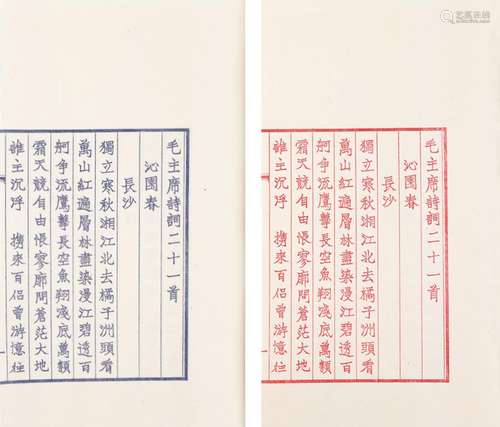 艺狐在线
毛主席詩詞二十一首
沁園春
長沙
獨立寒秋湘江北去橘子洲頭看
萬山紅遍層林盡染漫江碧透百
舸爭流鷹擊長空魚翔淺底萬類
霜天競自由悵寥廓問蒼茫大地
誰主沉浮 攜來百侶曾游憶往
毛主席詩詞二十一首
沁園春
長沙
獨立寒秋湘江北去橘子洲頭看
萬山紅遍層林盡染漫江碧透百
舸爭流鷹擊長空魚翔淺底萬類
霜天競自由悵寥廓問蒼茫大地
誰主沉浮 攜來百侶曾游憶往